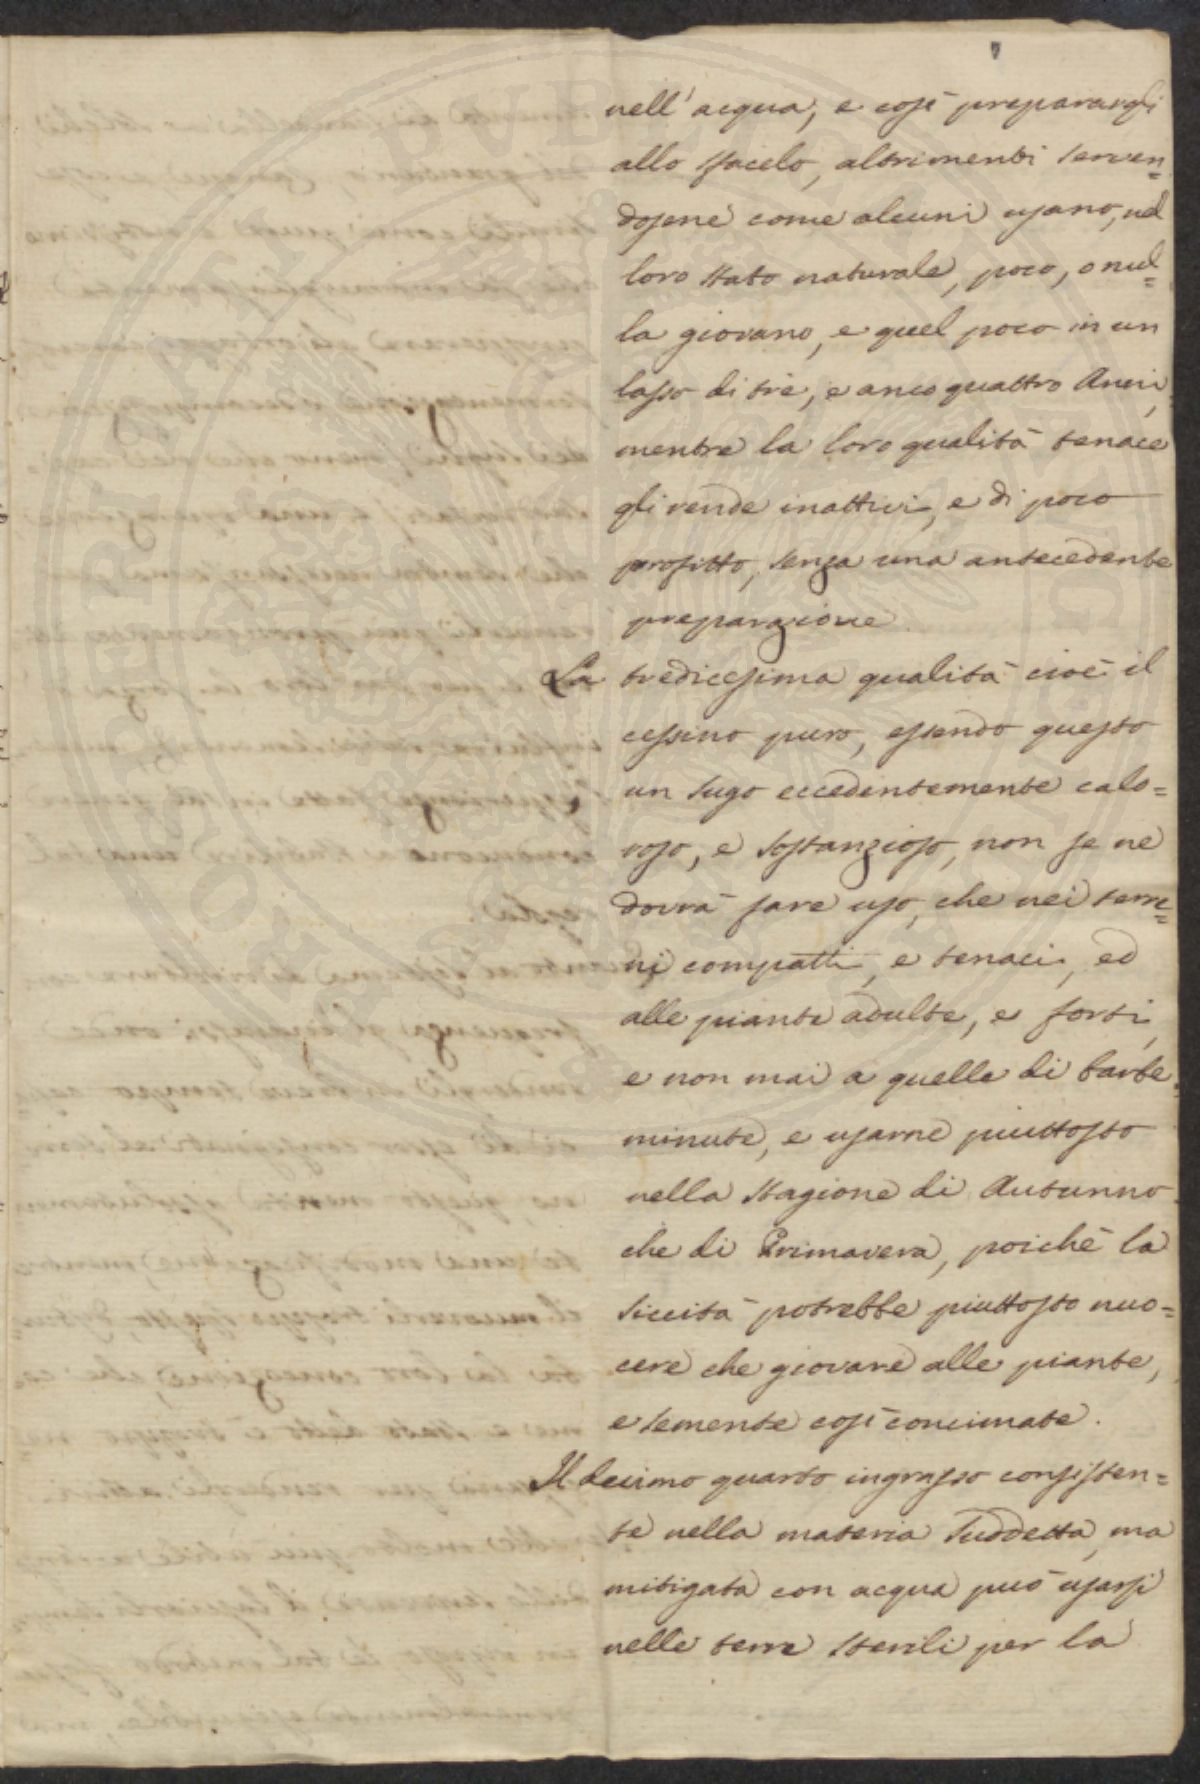 nell'acqua, e così preparargli
allo sfacelo, altrimenti serven=
dosene come alcuni usano, nel
loro stato naturale, poco, o nul=
la giovano, e quel poco in un
lasso di trè, e anco quattro Anni,
mentre la loro qualità tenace
gli rende inattivi, e di poco
profitto, senza una antecedente
preparazione.
La tredicesima qualità cioè il
cessino puro, essendo questo
un sugo eccedentemente calo=
roso, e sostanzioso, non se ne
dovrà fare uso, che nei terre=
ni compatti, e tenaci, ed
alle piante adulte, e forti,
e non mai a quelle di barbe
minute, e usarne piuttosto
nella stagione di Autunno
che di Primavera, poichè la
siccità potrebbe piuttosto nuo=
cere che giovare alle piante,
e semente così concimate.
Il decimo quarto ingrasso consisten=
te nella materia suddetta, ma
mitigata con acqua può usarsi
nelle terre sterili per la